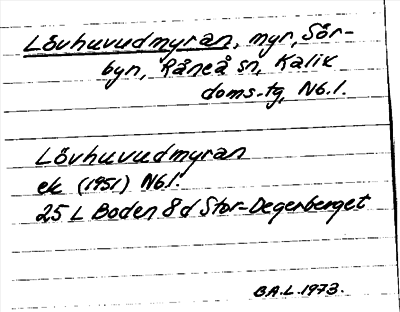 Lövhuvudmyran, myr, Sör-
byn, Råneå sn, Kalix
doms.tg, Nb.l.
Lövhuvudmyran
ek (1951) Nb.l.
25 L Boden 8d Stor-Degerberget
B.A.L. 1973.